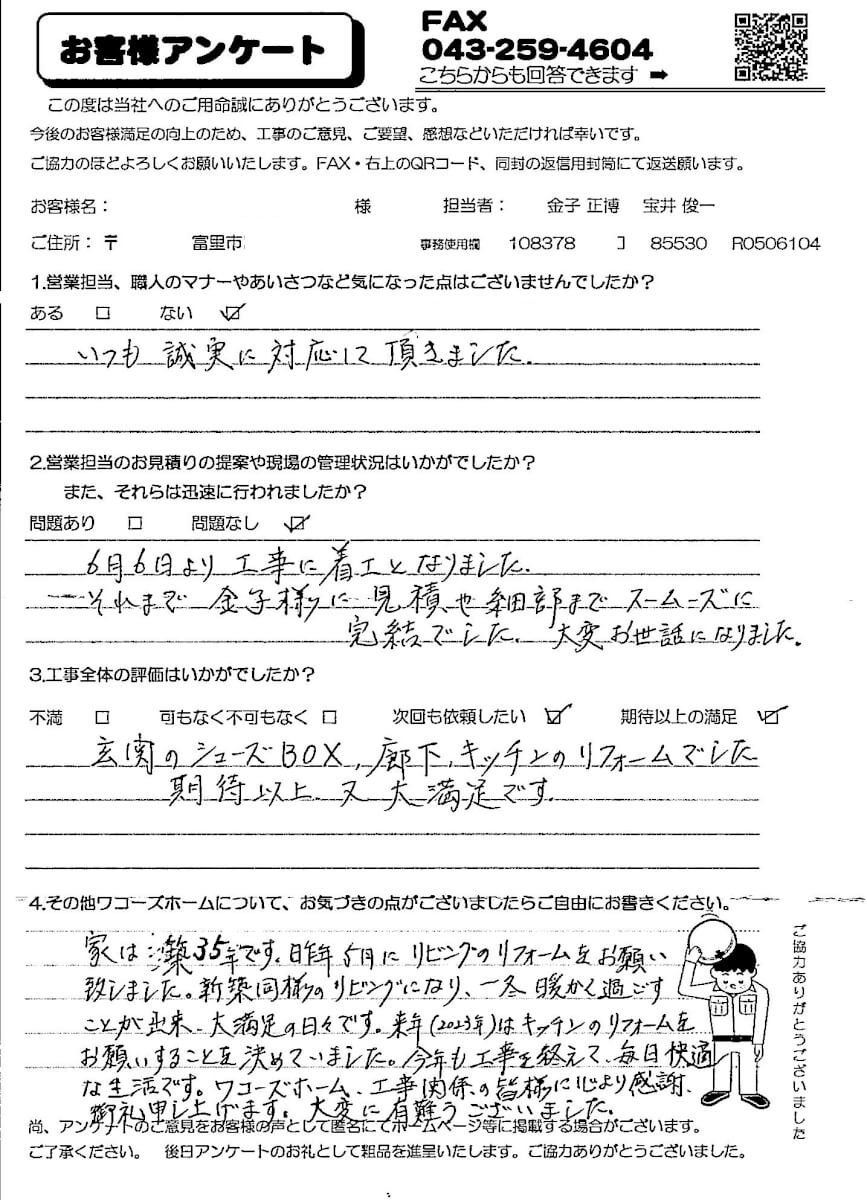 お客様アンケート
FAX
043-259-4604
こちらからも回答できます ➡
この度は当社へのご用命誠にありがとうございます。
今後のお客様満足の向上のため、工事のご意見、ご要望、感想などいただければ幸いです。
ご協力のほどよろしくお願いいたします。FAX・右上のQRコード、同封の返信用封筒にて返送願います。
お客様名： 様 担当者： 金子 正博 宝井 俊一
ご住所：〒 富里市 事務使用欄 108378 コ 85530 R0506104
1.営業担当、職人のマナーやあいさつなど気になった点はございませんでしたか？
ある □ ない ☑
いつも 誠実に対応して頂きました.
2.営業担当のお見積りの提案や現場の管理状況はいかがでしたか？
また、それらは迅速に行われましたか？
問題あり □ 問題なし ☑
6月6日より工事に着工となりました.
それまで 金子様に見積や細部までスームーズに
完結でした. 大変お世話になりました.
3.工事全体の評価はいかがでしたか？
不満 □ 可もなく不可もなく □ 次回も依頼したい ☑ 期待以上の満足 ☑
玄関のシューズBOX, 廊下, キッチンのリフォームでした
期待以上 又 大満足です.
4.その他ワコーズホームについて、お気づきの点がございましたらご自由にお書きください。
家は築35年です。昨年5月にリビングのリフォームをお願い
致しました。新築同様のリビングになり、一冬暖かく過ごす
ことが出来、大満足の日々です。来年(2023年)はキッチンのリフォームを
お願いすることを決めていました。今年も工事を終えて、毎日快適
な生活です。ワコーズホーム、工事関係の皆様に心より感謝、
御礼申し上げます。大変に有難うございました。
尚、アンケートのご意見をお客様の声として匿名にてホームページ等に掲載する場合がございます。
ご了承ください。 後日アンケートのお礼として粗品を進呈いたします。ご協力ありがとうございました。
ご協力ありがとうございました